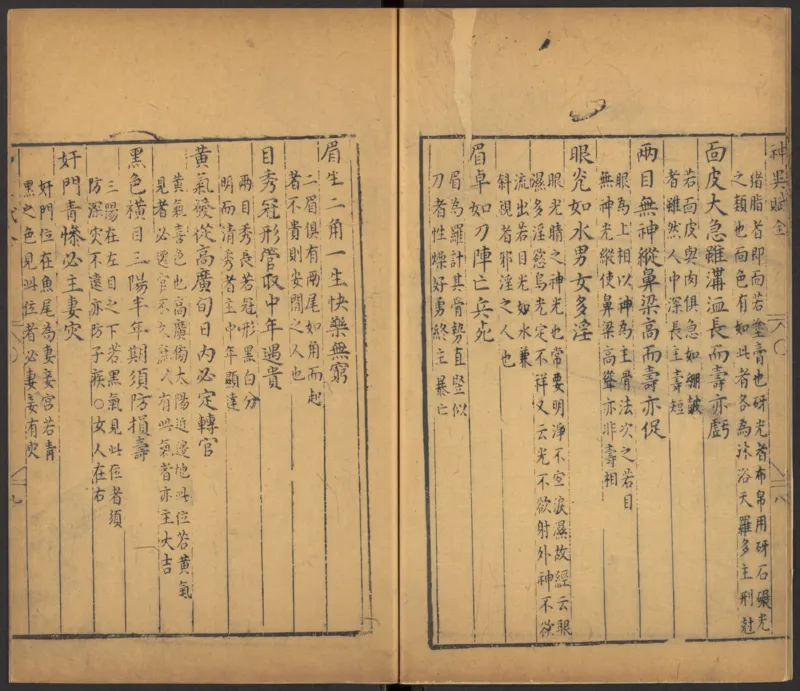 神異賦全
猪脂者即面若塗膏也砑光者布帛用砑石碾光
之類也面色有如此者各為沐浴天羅多主刑尅
面皮大急雖溝洫長而壽亦虧
若面皮與肉俱急如綳皷
者雖然人中深長主壽短
兩目無神縱鼻梁高而壽亦促
眼為上相以神為主骨法次之若目
無神光縱使鼻梁高聳亦非壽相
眼光如水男女多淫
眼光睛之神光也常要明淨不宜淚濕故經云眼
濕多淫慾烏光定不祥又云光不欲射外神不欲
流出若目光如水兼
斜視者邪淫之人也
眉卓如刀陣亡兵死
眉為羅計其骨勢直竪似
刀者性燥好勇終主暴亡
八
眉生二角一生快樂無窮
二眉俱有兩尾如角而起
者不貴則安閒之人也
目秀冠形管取中年遇貴
兩目秀長若冠形黑白分
明而清秀者主中年顯達
黃氣發從高廣旬日內必定轉官
黃氣喜色也高廣獨太陽近邊地此位若黃氣
見者必遷官不久號人有此氣者亦主大吉
黑色橫目三陽半年期須防損壽
三陽在左目之下若黑氣見此位者須
防深灾不遠亦防子疾○女人在右
奸門青慘必主妻灾
奸門位在魚尾為妻妾宮若青
黑之色見此位者必妻妾有灾
九